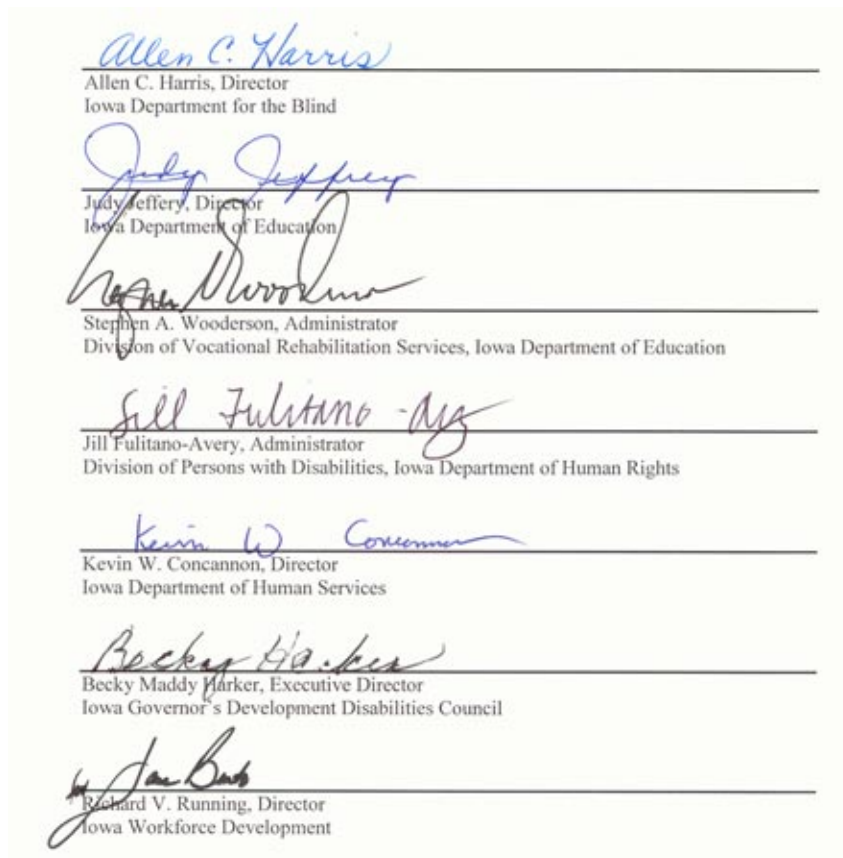 Allen C. Harris
Allen C. Harris, Director
Iowa Department for the Blind
Judy Jeffrey
Judy Jeffery, Director
Iowa Department of Education
Stephen A. Wooderson, Administrator
Division of Vocational Rehabilitation Services, Iowa Department of Education
Jill Fulitano-Avery
Jill Fulitano-Avery, Administrator
Division of Persons with Disabilities, Iowa Department of Human Rights
Kevin W Concannon
Kevin W. Concannon, Director
Iowa Department of Human Services
Becky Harker
Becky Maddy Harker, Executive Director
Iowa Governor's Development Disabilities Council
Richard V. Running, Director
Iowa Workforce Development